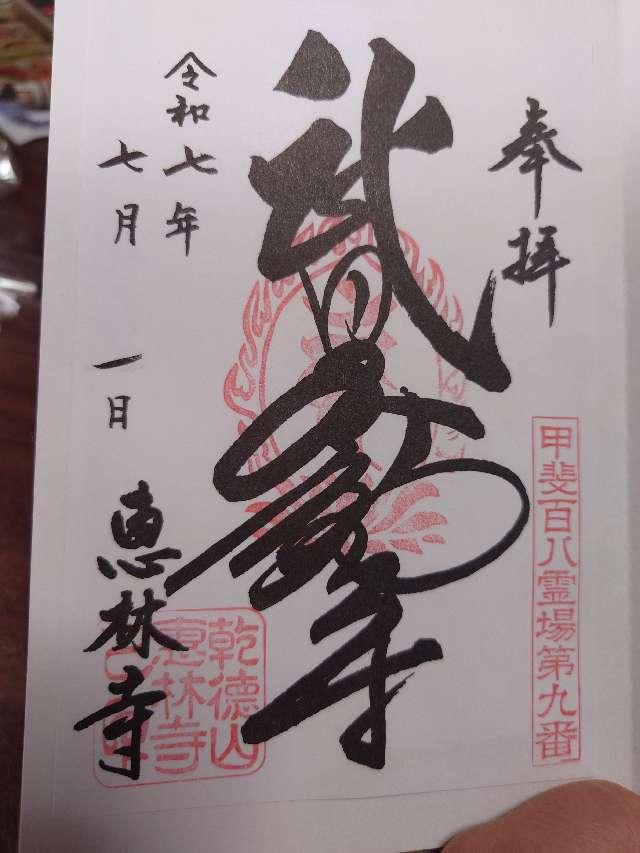 奉拝
甲斐百八霊場第九番
武田不動尊
令和七年
七月一日
恵林寺
乾徳山
恵林寺